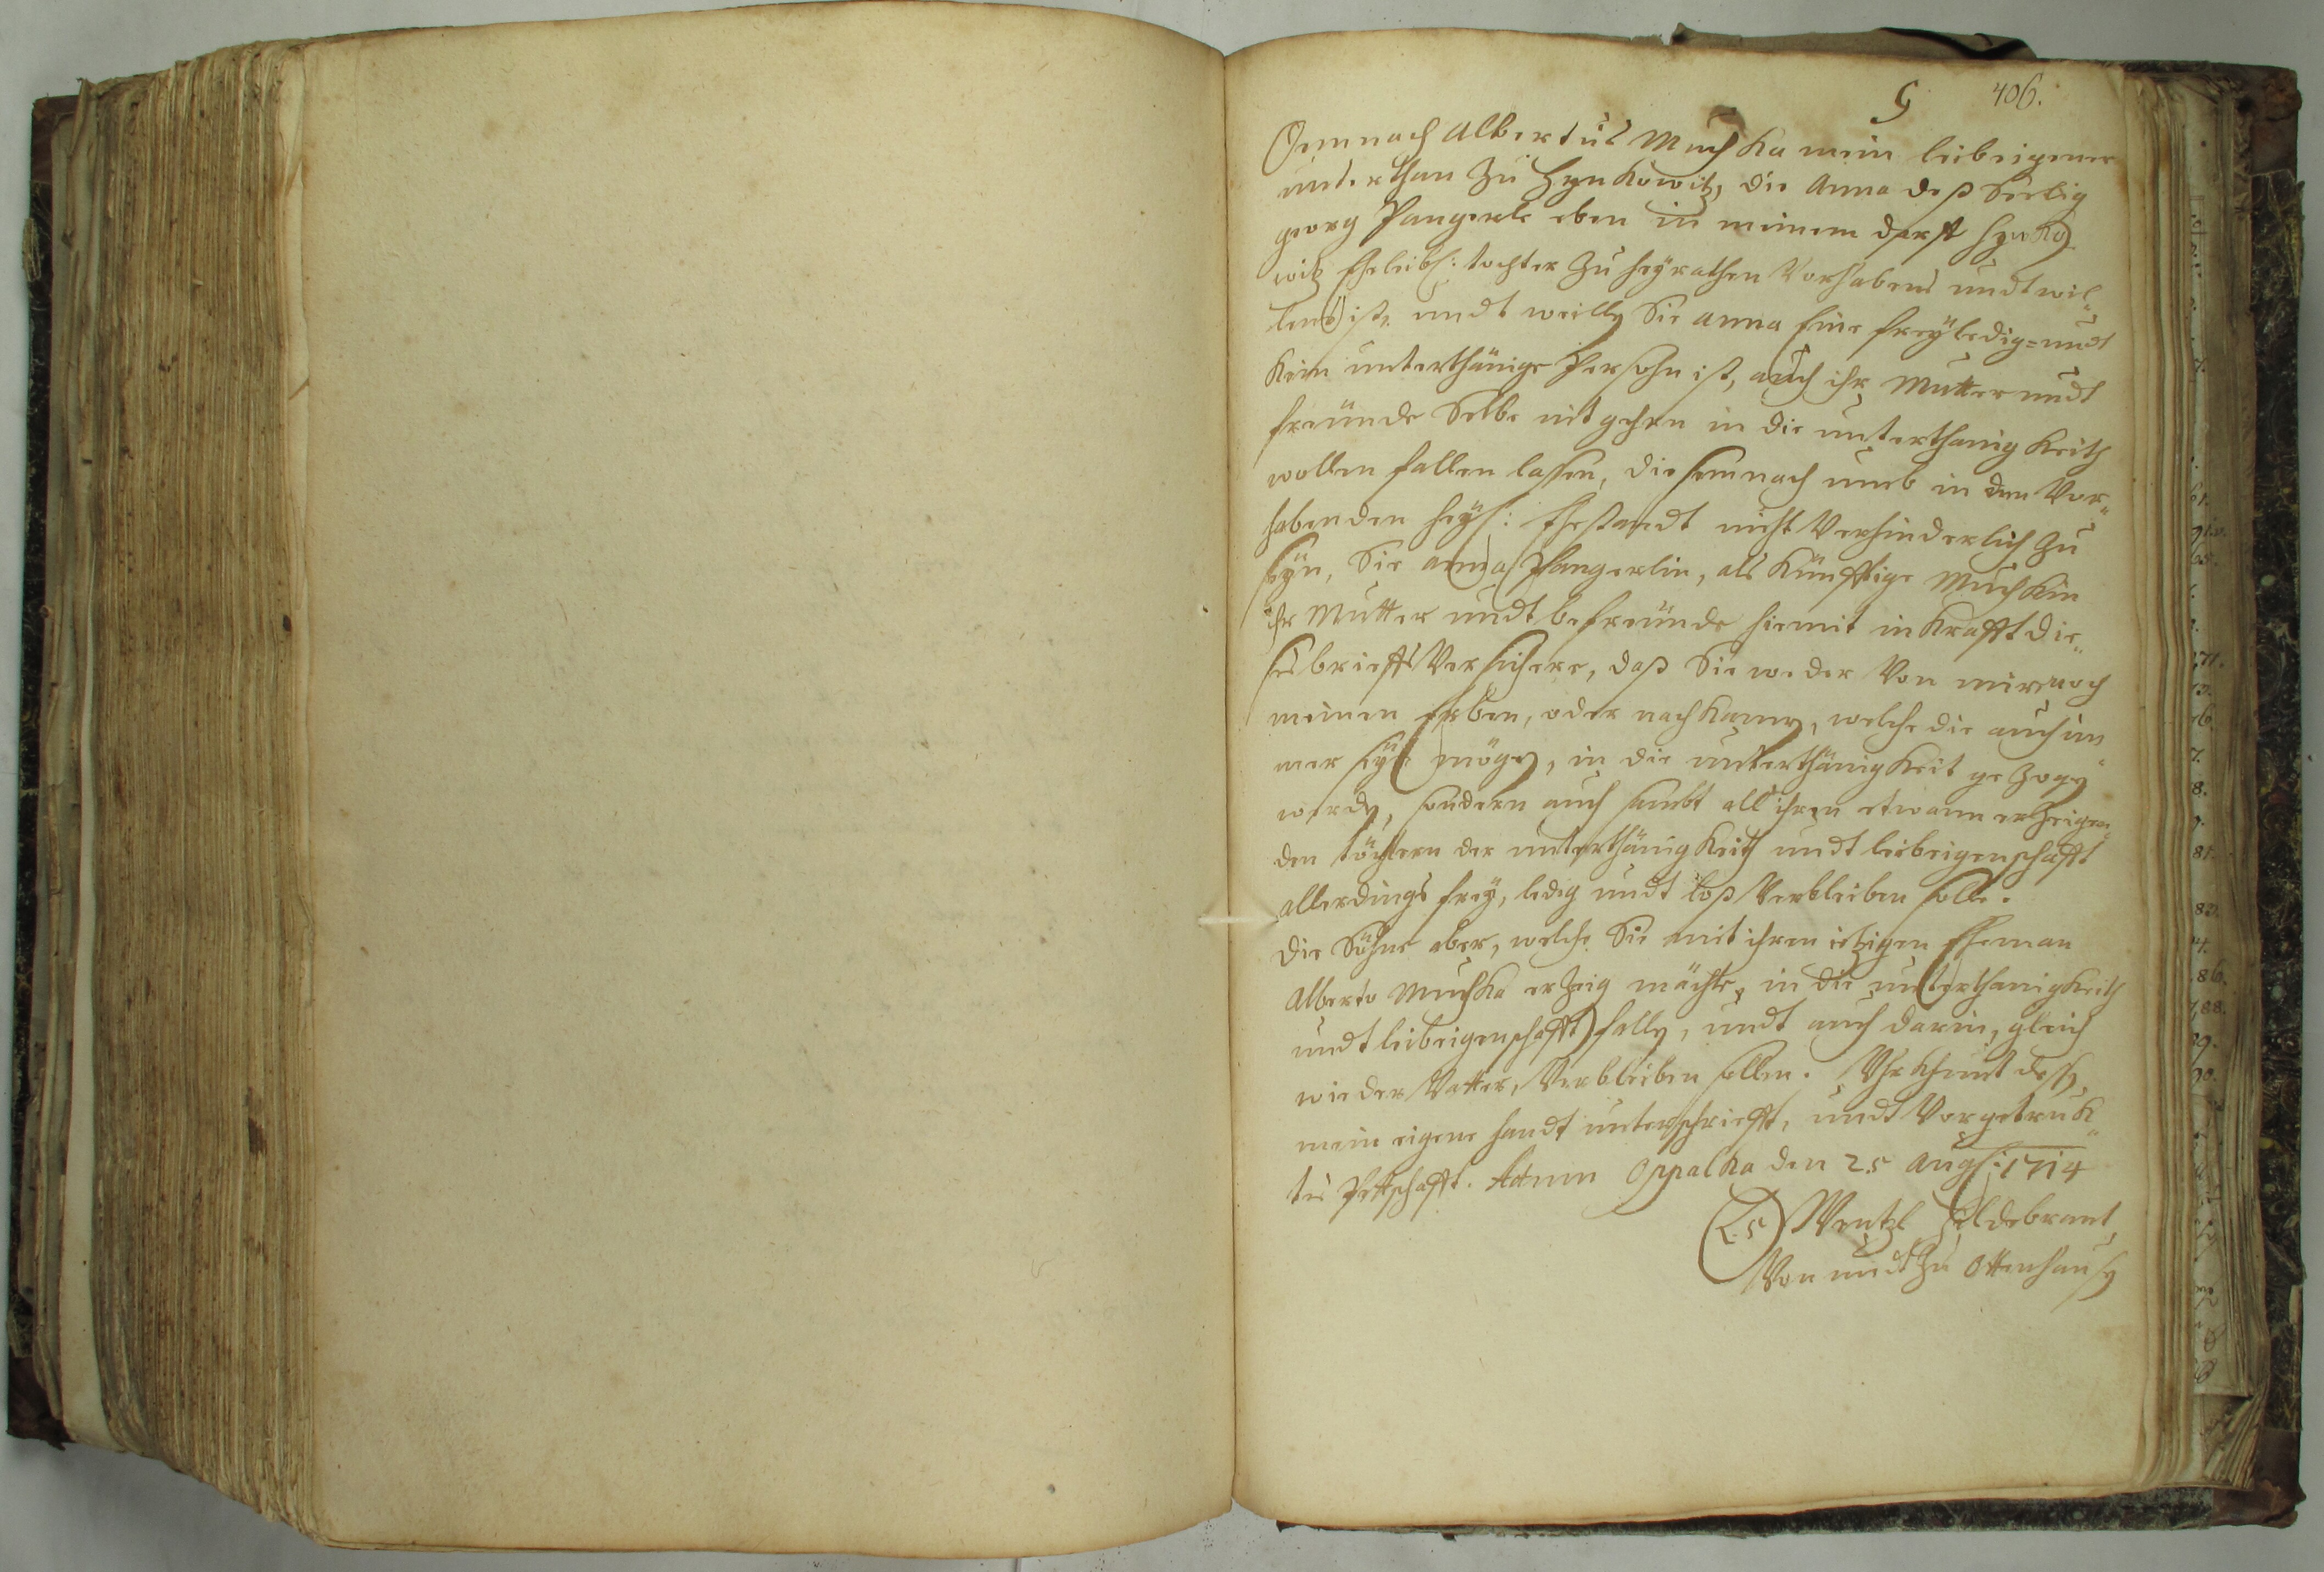 G 406.
Demnach Albertus Muchka mein leibeigener
unterthan zu Hynkowitz, die Anna deß Seelig
georg Pangerle eben in meinem dorff Hynko
witz Eheleibl: tochter zu heÿrathen Vorhabens undt wil„
lens ist, undt weilln Sie Anna Eine freÿ ledig= undt
Kein unterthänige Persohn ist, auch ihr Mutter undt
freünde Selbe nit gehrn in die unterthanigkeith
wollen fallen lassen, diesemnach umb in dem Vor„
habenden heÿl: Ehestandt nicht Verhinderlich zu
seÿn, Sie Anna Pangerlin, als Künfftige Muchkin
ihr Mutter undt befreünde hiemit in Krafft die„
ses brieffs Versichere, daß Sie weder Von mir noch
meinen Erben, oder nachkomn, welche die auch im„
mer seÿn mögn, in die unterthänigkeit gezogn
werdn, sondern auch sambt all ihren etwann erzeigen„
den töchtern der unterthänigkeith undt leibeigenschafft
allerdings freÿ, ledig undt loß Verbleiben solle.
Die Söhne aber, welche Sie mit ihren ietzigen Eheman
Alberto Muchka erzeig möchte, in die unterthanigkeith
undt leibeigenschafft falln, undt auch darin, gleich
wie der Vatter, Verbleiben sollen. Uhrkhunt dessn
mein eigene handt unterschrifft, undt Vorgetruk„
tes Pettschafft. Actum Oppalka den 25 Augs: 1714
(L.S) Wentzl Hildebrant
Von undt zu Ottenhausn